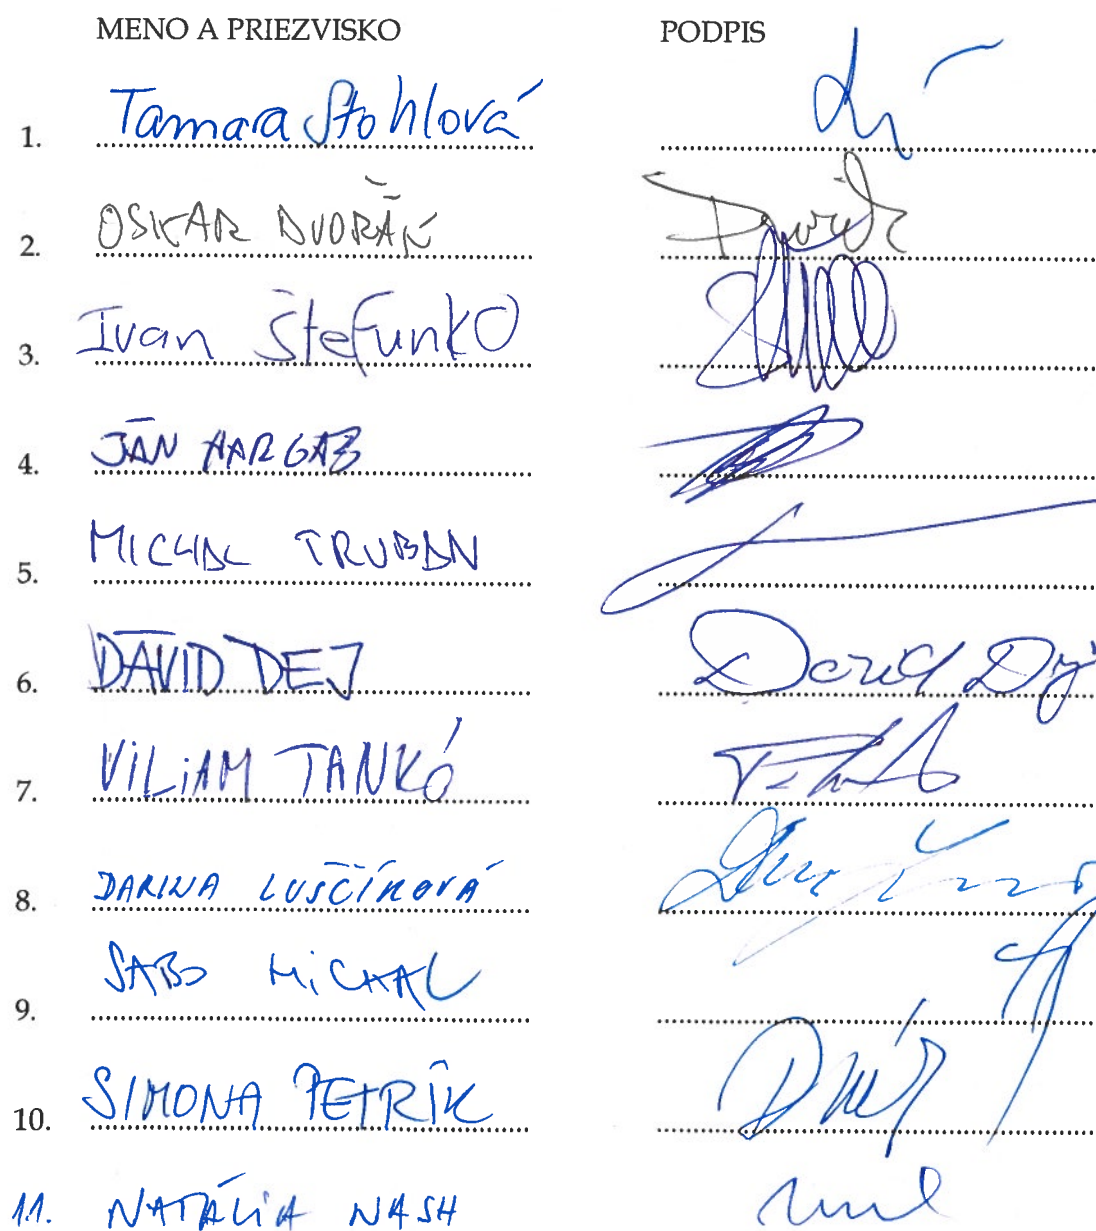 MENO A PRIEZVISKO PODPIS
1. Tamara Stohlová
2. OSKAR DVOŘÁK
3. Ivan Štefunko
4. JÁN HARGAŠ
5. MICHAL TRUBAN
6. DÁVID DEJ Dávid Dej
7. VILIAM TANKÓ
8. DARINA LUŠČÍKOVÁ
9. SABO MICHAL
10. SIMONA PETRÍK
11. NATÁLIA NASH